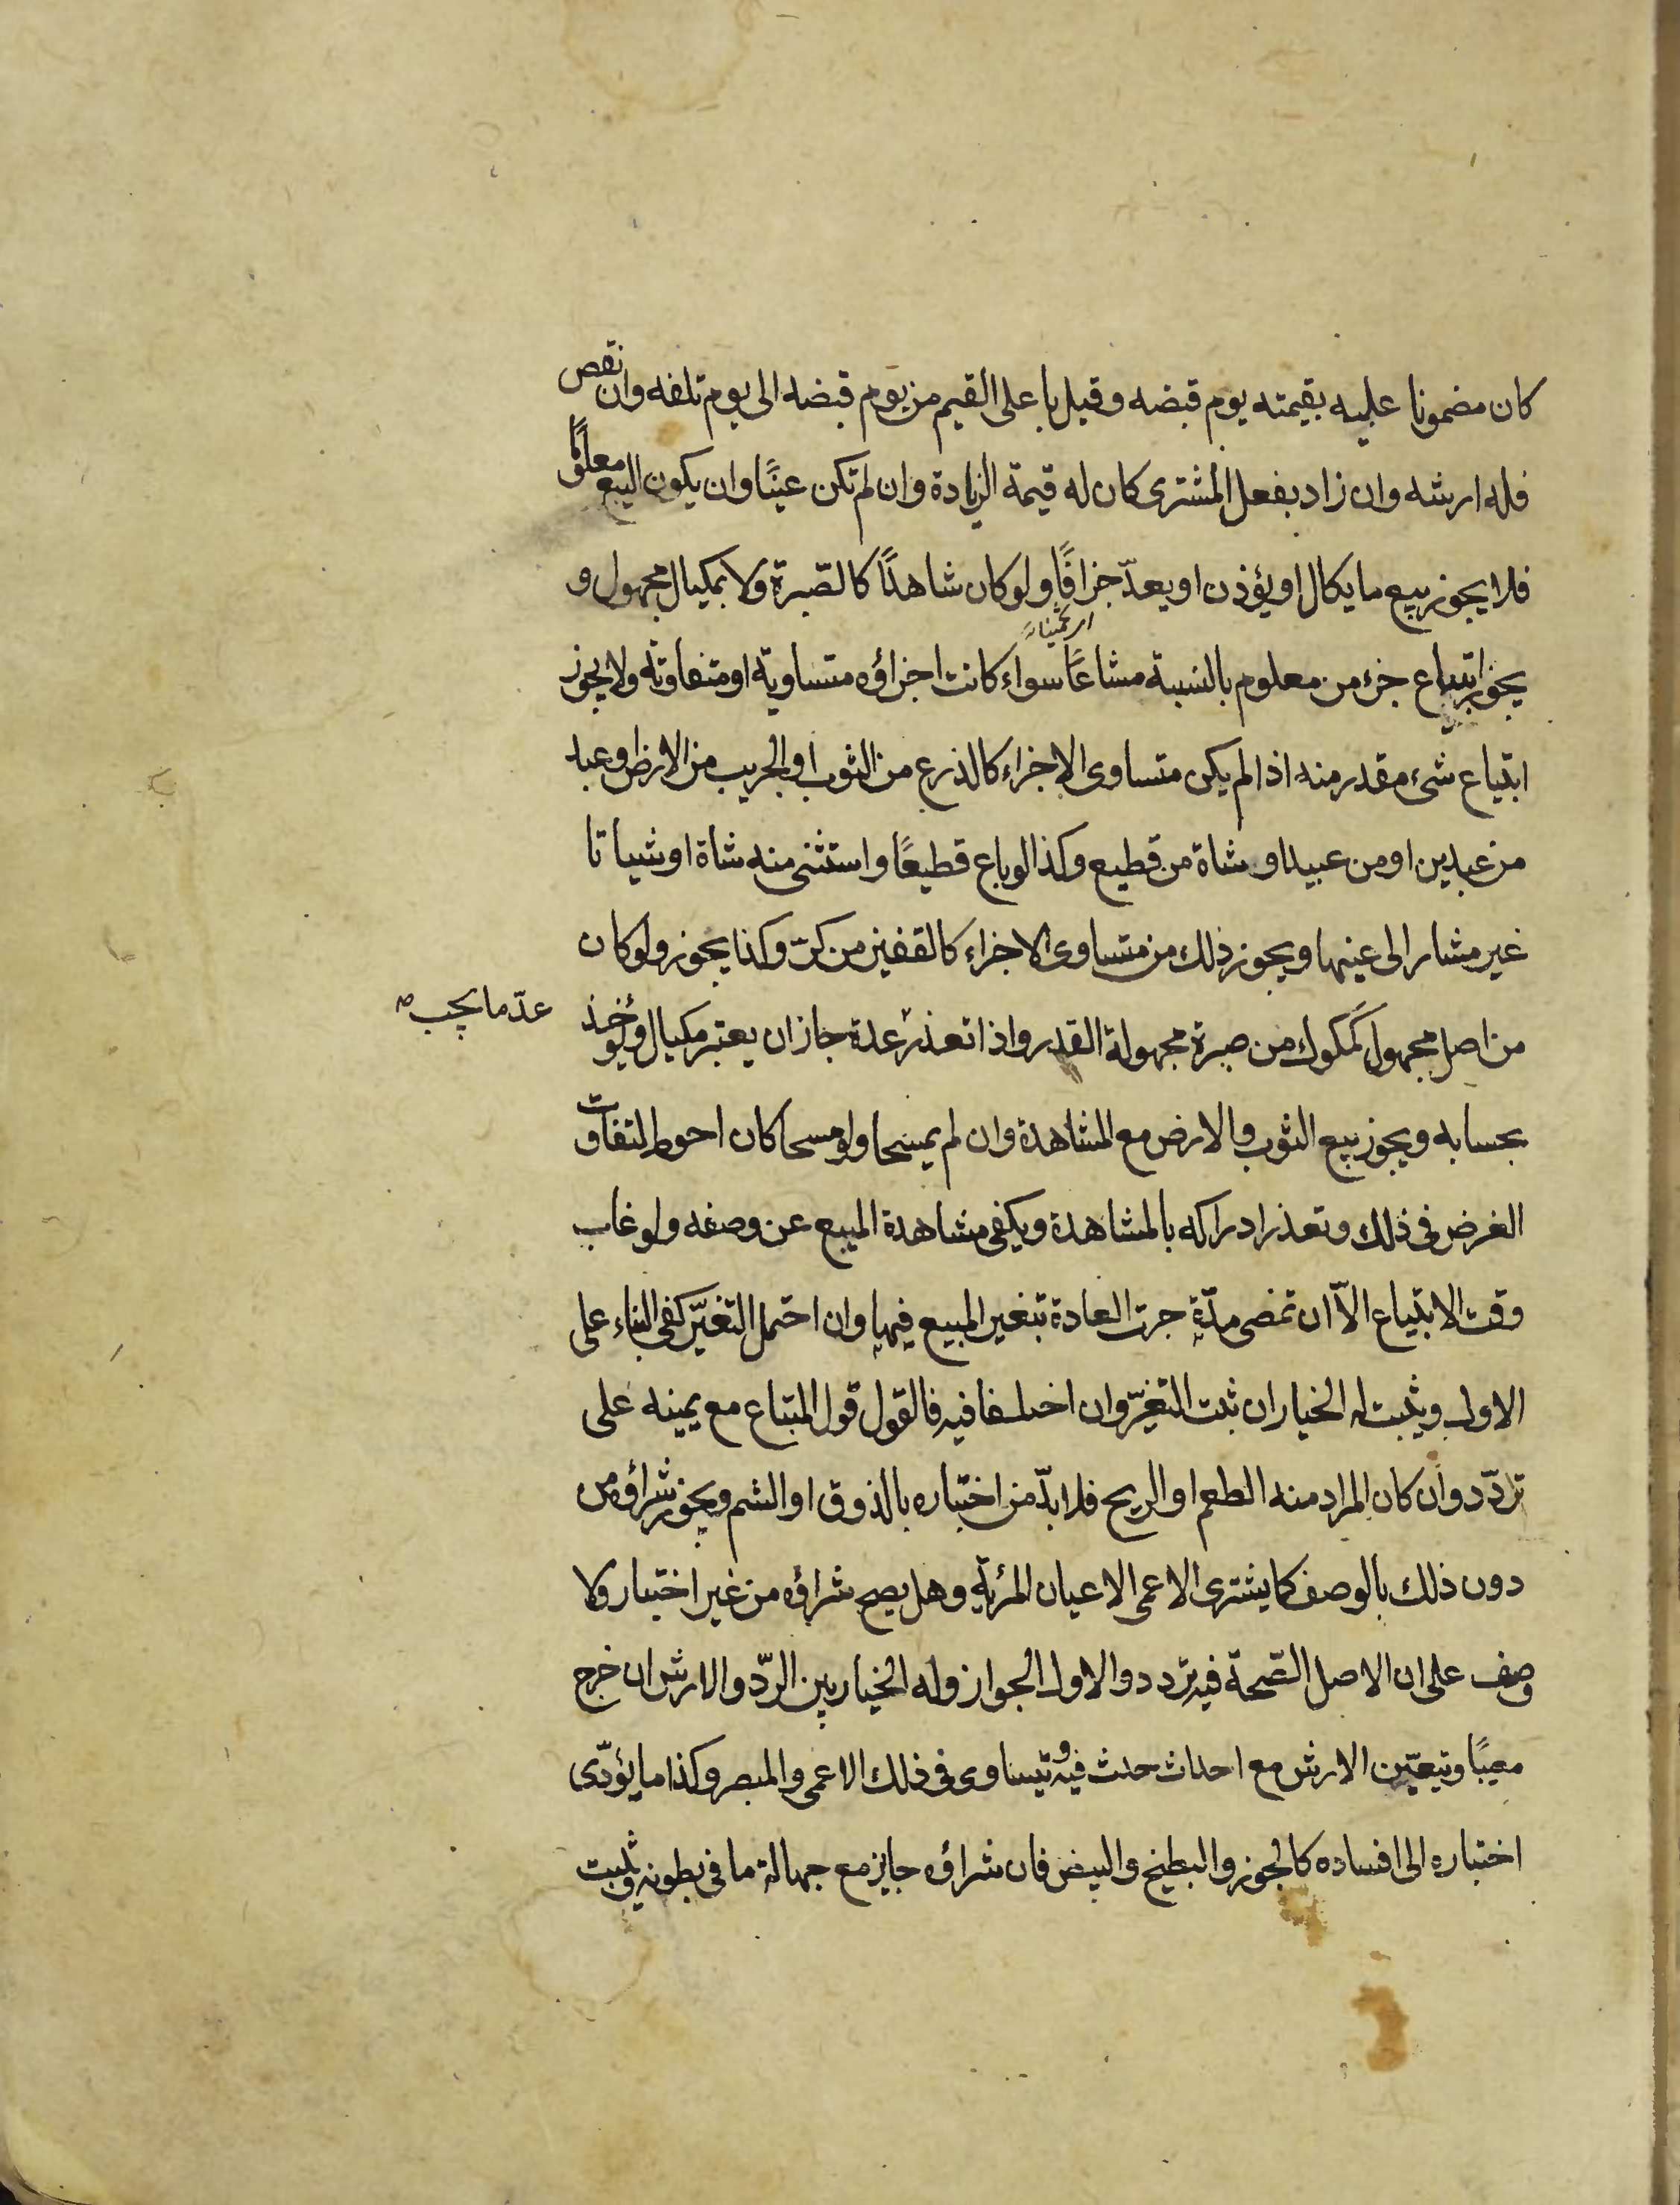 كان مضمونا عليه بقيمته يوم قبضه وقيل باعلى القيم من يوم قبضه الى يوم تلفه وان نقص
فله ارشه وان زاد بفعل المشترى كان له قيمة الزيادة وان لم تكن عينًا وان يكون البيع معلومًا
فلا يجوز بيع ما يكال او يؤذن او يعدّ جزافًا ولو كان شاهدًا كالصّبرة ولا بمكيال مجهول و
اى تخمينا
يجوز ابتياع جزء من معلوم بالنسبة مشاعًا سواء كانت اجزاؤه متساوية او متفاوتة ولا يجوز
ابتياع شىء مقدر منه اذا لم يكن متساوى الاجزاء كالذرع من الثوب او الجريب من الارض او عبد
من عبدين او من عبيد او شاة من قطيع وكذا لو باع قطيعًا واستثنى منه شاة او شياتا
غير مشار الى عينها ويجوز ذلك من متساوى الاجزاء كالقفيز من كرّ وكذا يجوز ولو كان
من اصل مجهول كمكوك من صبرة مجهولة القدر واذا تعذر عدة جاز ان يعتبر مكيال ويؤخذ
عدّ ما يجب صه
بحسابه ويجوز بيع الثوب والارض مع المشاهدة وان لم يمسحا ولو مسحا كان احوط لتفاوت
الغرض فى ذلك وتعذر ادراكه بالمشاهدة ويكفى مشاهدة المبيع عن وصفه ولو غاب
وقت الابتياع الاّ ان تمضى مدّة جرت العادة بتغير المبيع فيها وان احتمل التغيّر كفى البناء على
الاول ويثبت له الخيار ان ثبت التغيّر وان اختلفا فيه فالقول قول المبتاع مع يمينه على
تردّد وان كان المراد منه الطعم او الريح فلا بدّ من اختباره بالذوق او الشم ويجوز شراؤه من
دون ذلك بالوصف كما يشترى الاعمى الاعيان المرئية وهل يصح شراؤه من غير اختبار ولا
وصف على ان الاصل الصّحة فيه تردد والاول الجواز وله الخيار بين الردّ والارش ان خرج
معيبًا ويتعيّن الارش مع احداث حدث فيه و يتساوى فى ذلك الاعمى والمبصر وكذا ما يؤدّى
اختباره الى افساده كالجوز والبطيخ والبيض فان شراؤه جايز مع جهالة ما فى بطونه ويثبت